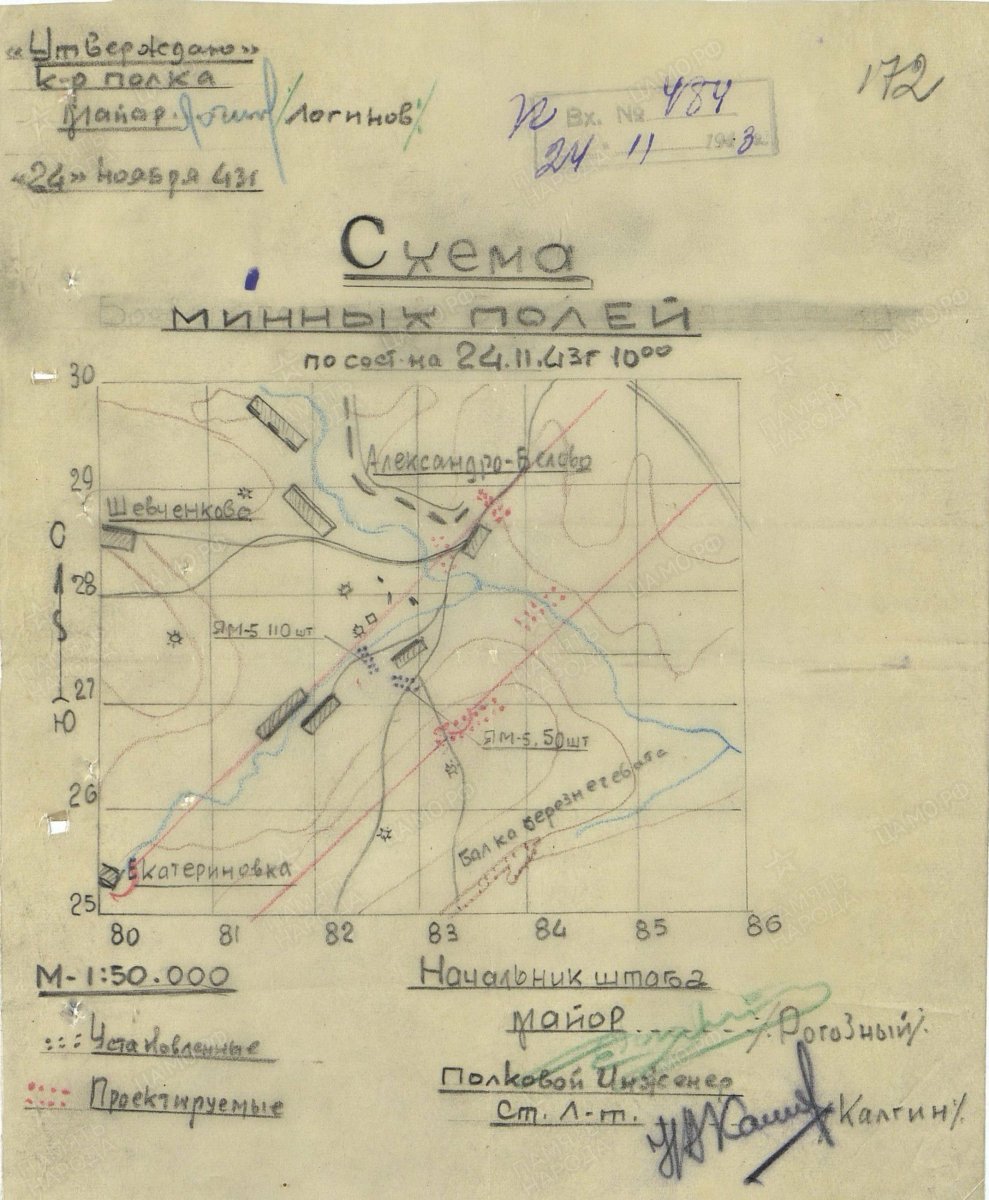 «Утверждаю»
к-р полка
Майор /Логинов/
«24» ноября 43г
172
Вх. № 484
24 11 1943г.
Схема
минных полей
по сост. на 24.11.43г 10⁰⁰
30
29
28
27
26
25
С
Ю
Александро-Белово
Шевченково
ЯМ-5 110 шт
ЯМ-5, 50шт
Балка
Екатериновка
80 81 82 83 84 85 86
М-1:50.000
Установленные
Проектируемые
Начальник штаба
майор........./Рогозный/.
Полковой Инженер
Ст. Л-т. /Калгин/.